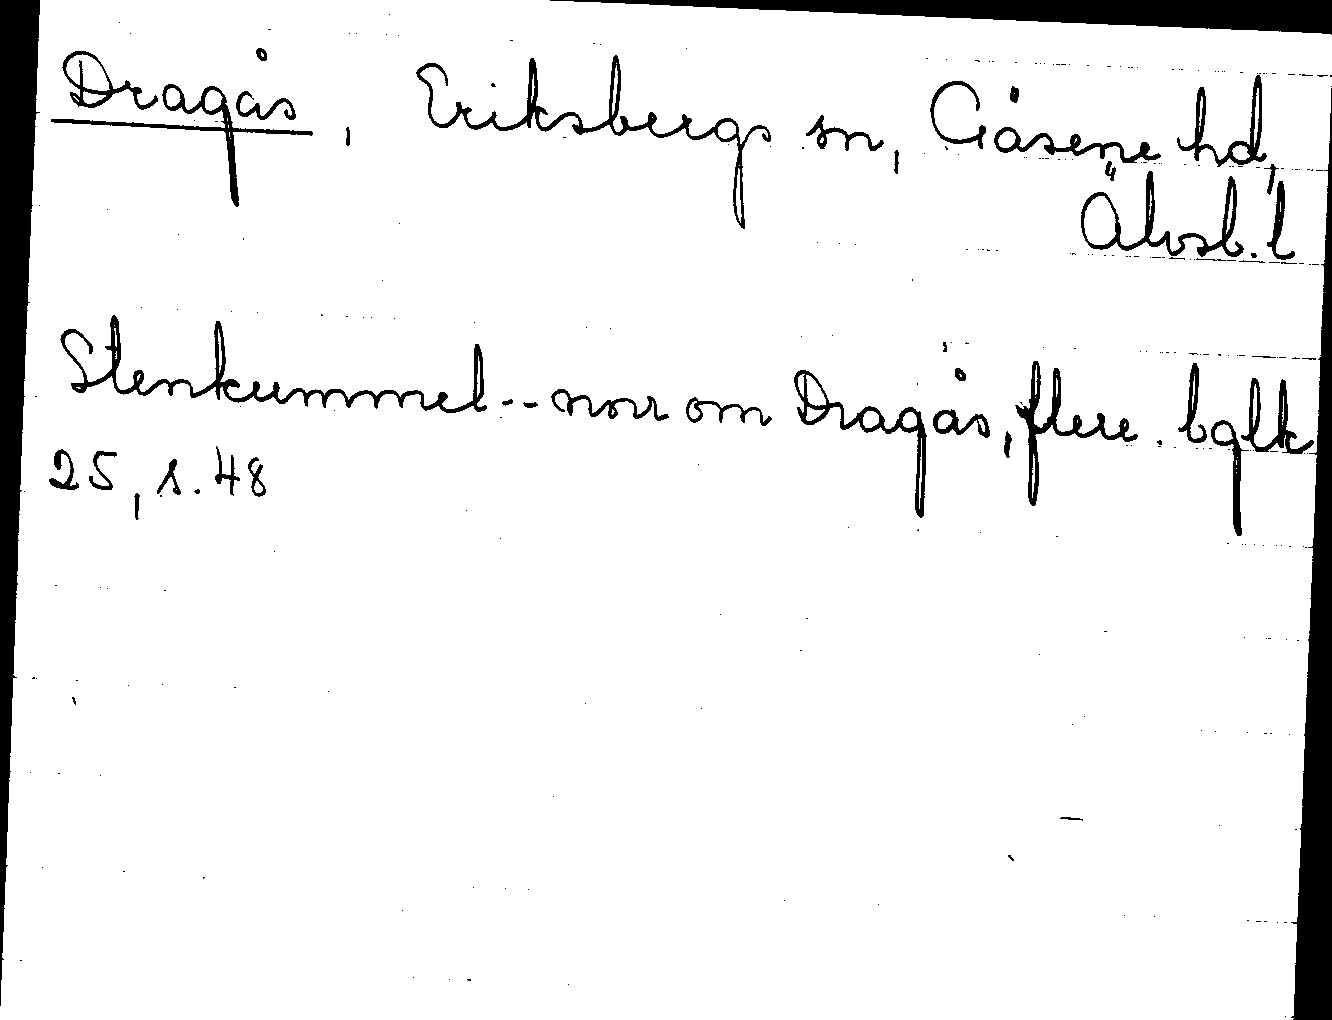 Dragås, Eriksbergs sn, Gäsene hd,
Älvsb. l
Stenkummel -- norr om Dragås, flere. bglk
25, s. 48